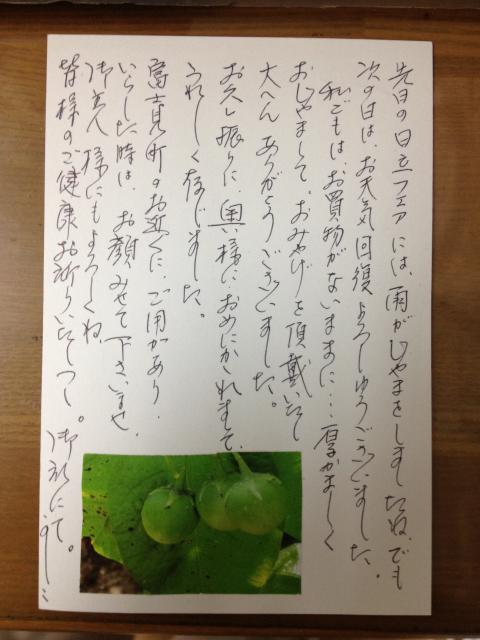 先日の日立フェアには、雨がじゃまをしましたね、でも
次の日は、お天気回復よろしゅうございました。
私どもは、お買物がないままに…厚かましく
おじゃまして。おみやげを頂戴いたし
大へんありがとうございました。
お久し振りに、奥様に、おめにかかれまして、
うれしく存じました。
富士見町のお近くに、ご用があり
いらした時は、お顔みせて下さいませ、
御主人様にもよろしくね、
皆様のご健康お祈りいたしつつ。
御礼にて。